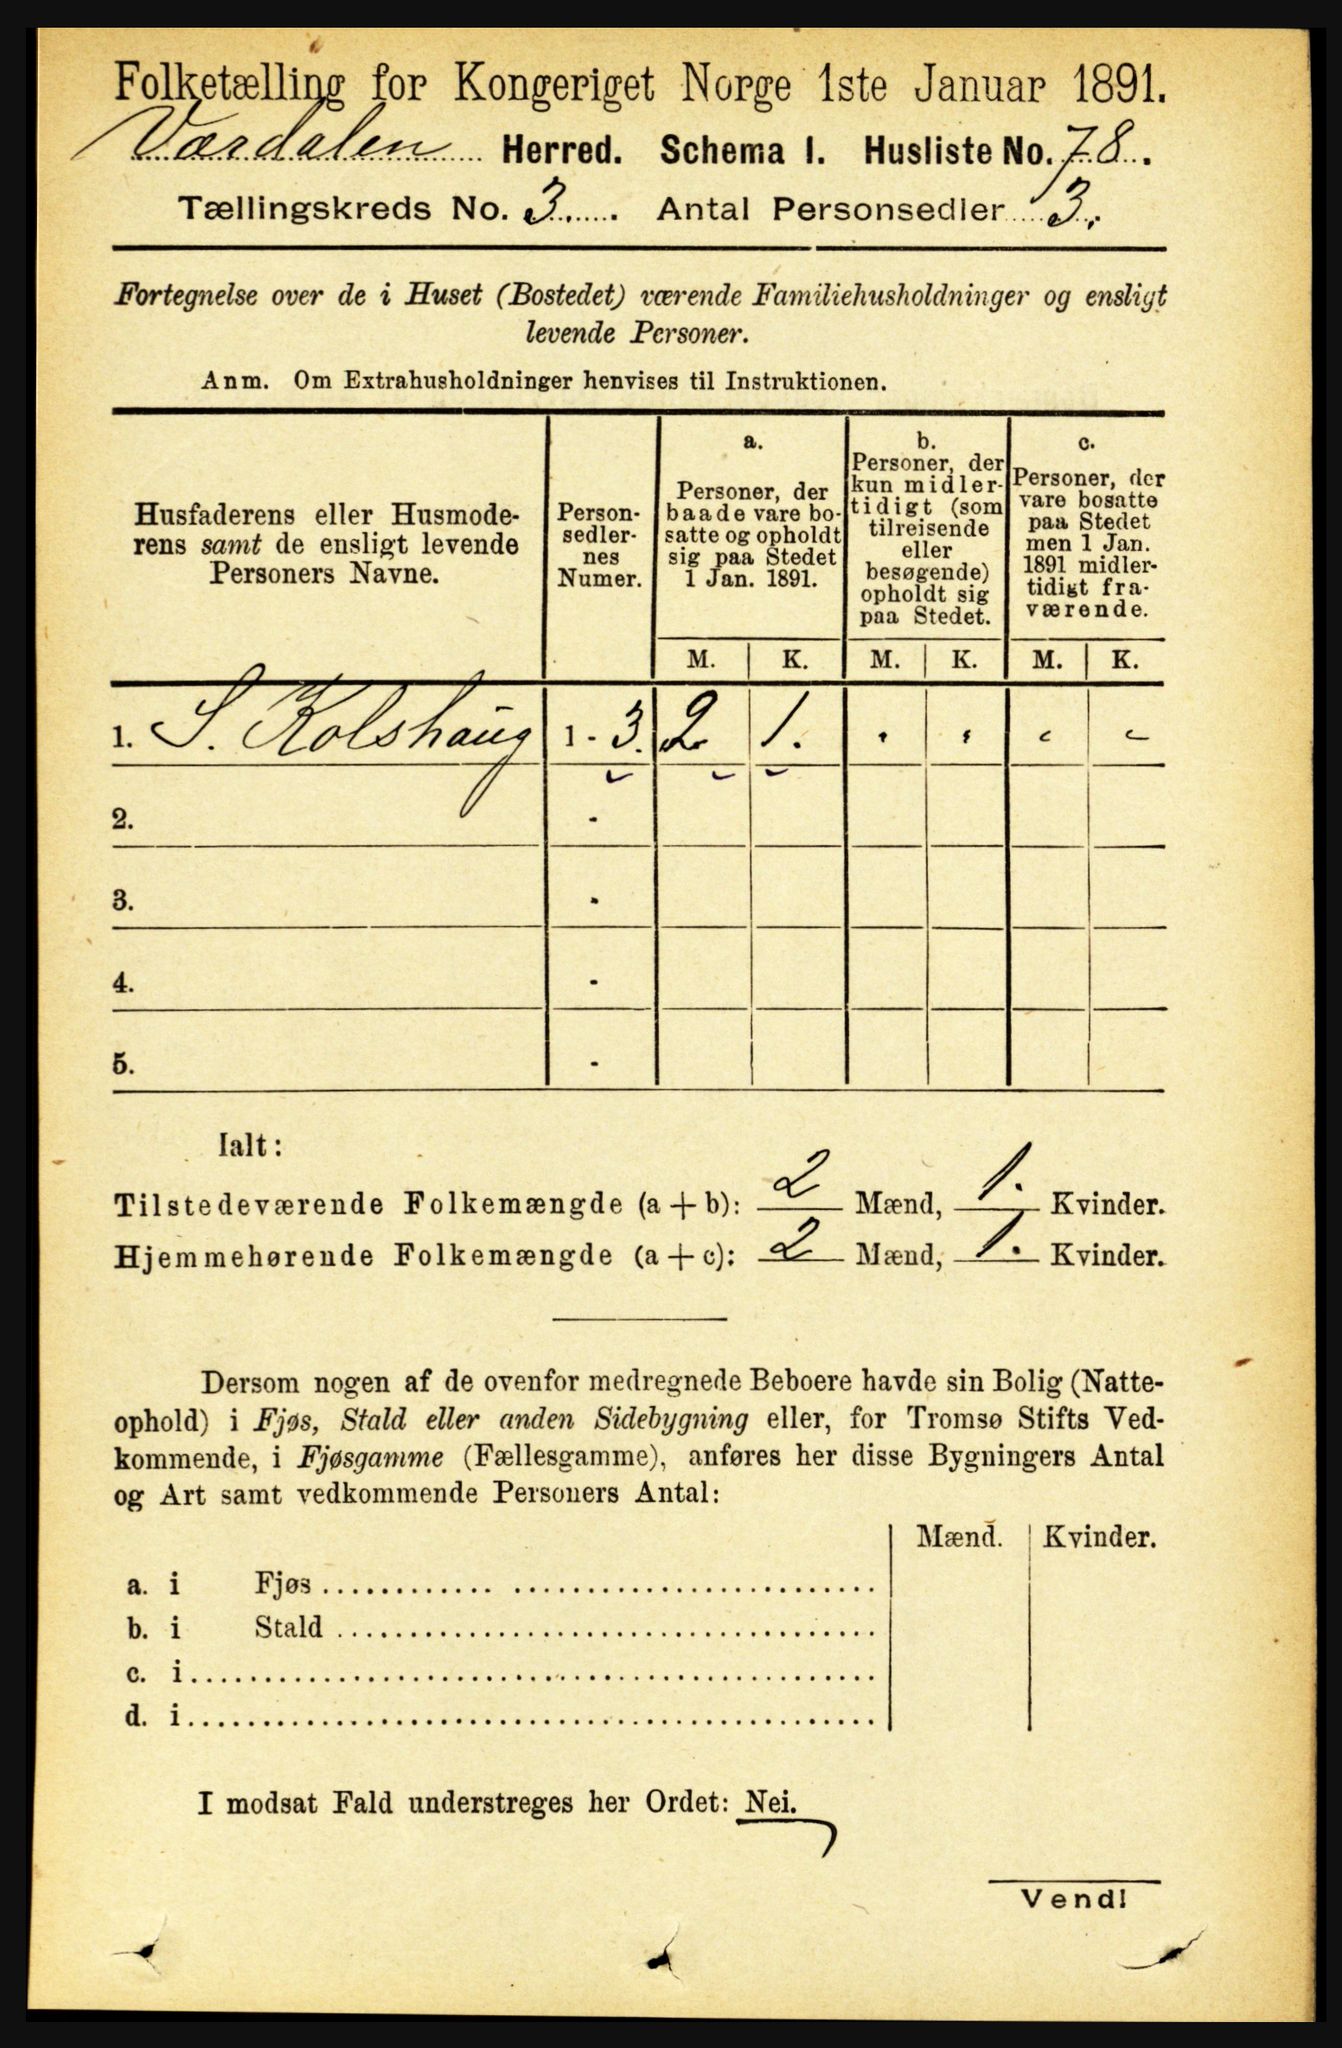 Folketælling for Kongeriget Norge 1ste Januar 1891.
Værdalen Herred. Schema I. Husliste No. 78.
Tællingskreds No. 3. Antal Personsedler 3.
Fortegnelse over de i Huset (Bostedet) værende Familiehusholdninger og ensligt
levende Personer.
Anm. Om Extrahusholdninger henvises til Instruktionen.
Husfaderens eller Husmode-
rens samt de ensligt levende
Personers Navne.
Person-
sedler-
nes
Numer.
a.
Personer, der
baade vare bo-
satte og opholdt
sig paa Stedet
1 Jan. 1891.
b.
Personer, der
kun midler-
tidigt (som
tilreisende
eller
besøgende)
opholdt sig
paa Stedet.
c.
Personer, der
vare bosatte
paa Stedet
men 1 Jan.
1891 midler-
tidigt fra-
værende.
M. K. M. K. M. K.
1. S. Kolshaug 1 - 3. 2 1.
2. -
3. -
4. -
5. -
Ialt:
Tilstedeværende Folkemængde (a + b): 2 Mænd, 1. Kvinder.
Hjemmehørende Folkemængde (a + c): 2 Mænd, 1. Kvinder.
Dersom nogen af de ovenfor medregnede Beboere havde sin Bolig (Natte-
ophold) i Fjøs, Stald eller anden Sidebygning eller, for Tromsø Stifts Ved-
kommende, i Fjøsgamme (Fællesgamme), anføres her disse Bygningers Antal
og Art samt vedkommende Personers Antal:
Mænd. Kvinder.
a. i Fjøs
b. i Stald
c. i
d. i
I modsat Fald understreges her Ordet: Nei.
Vend!